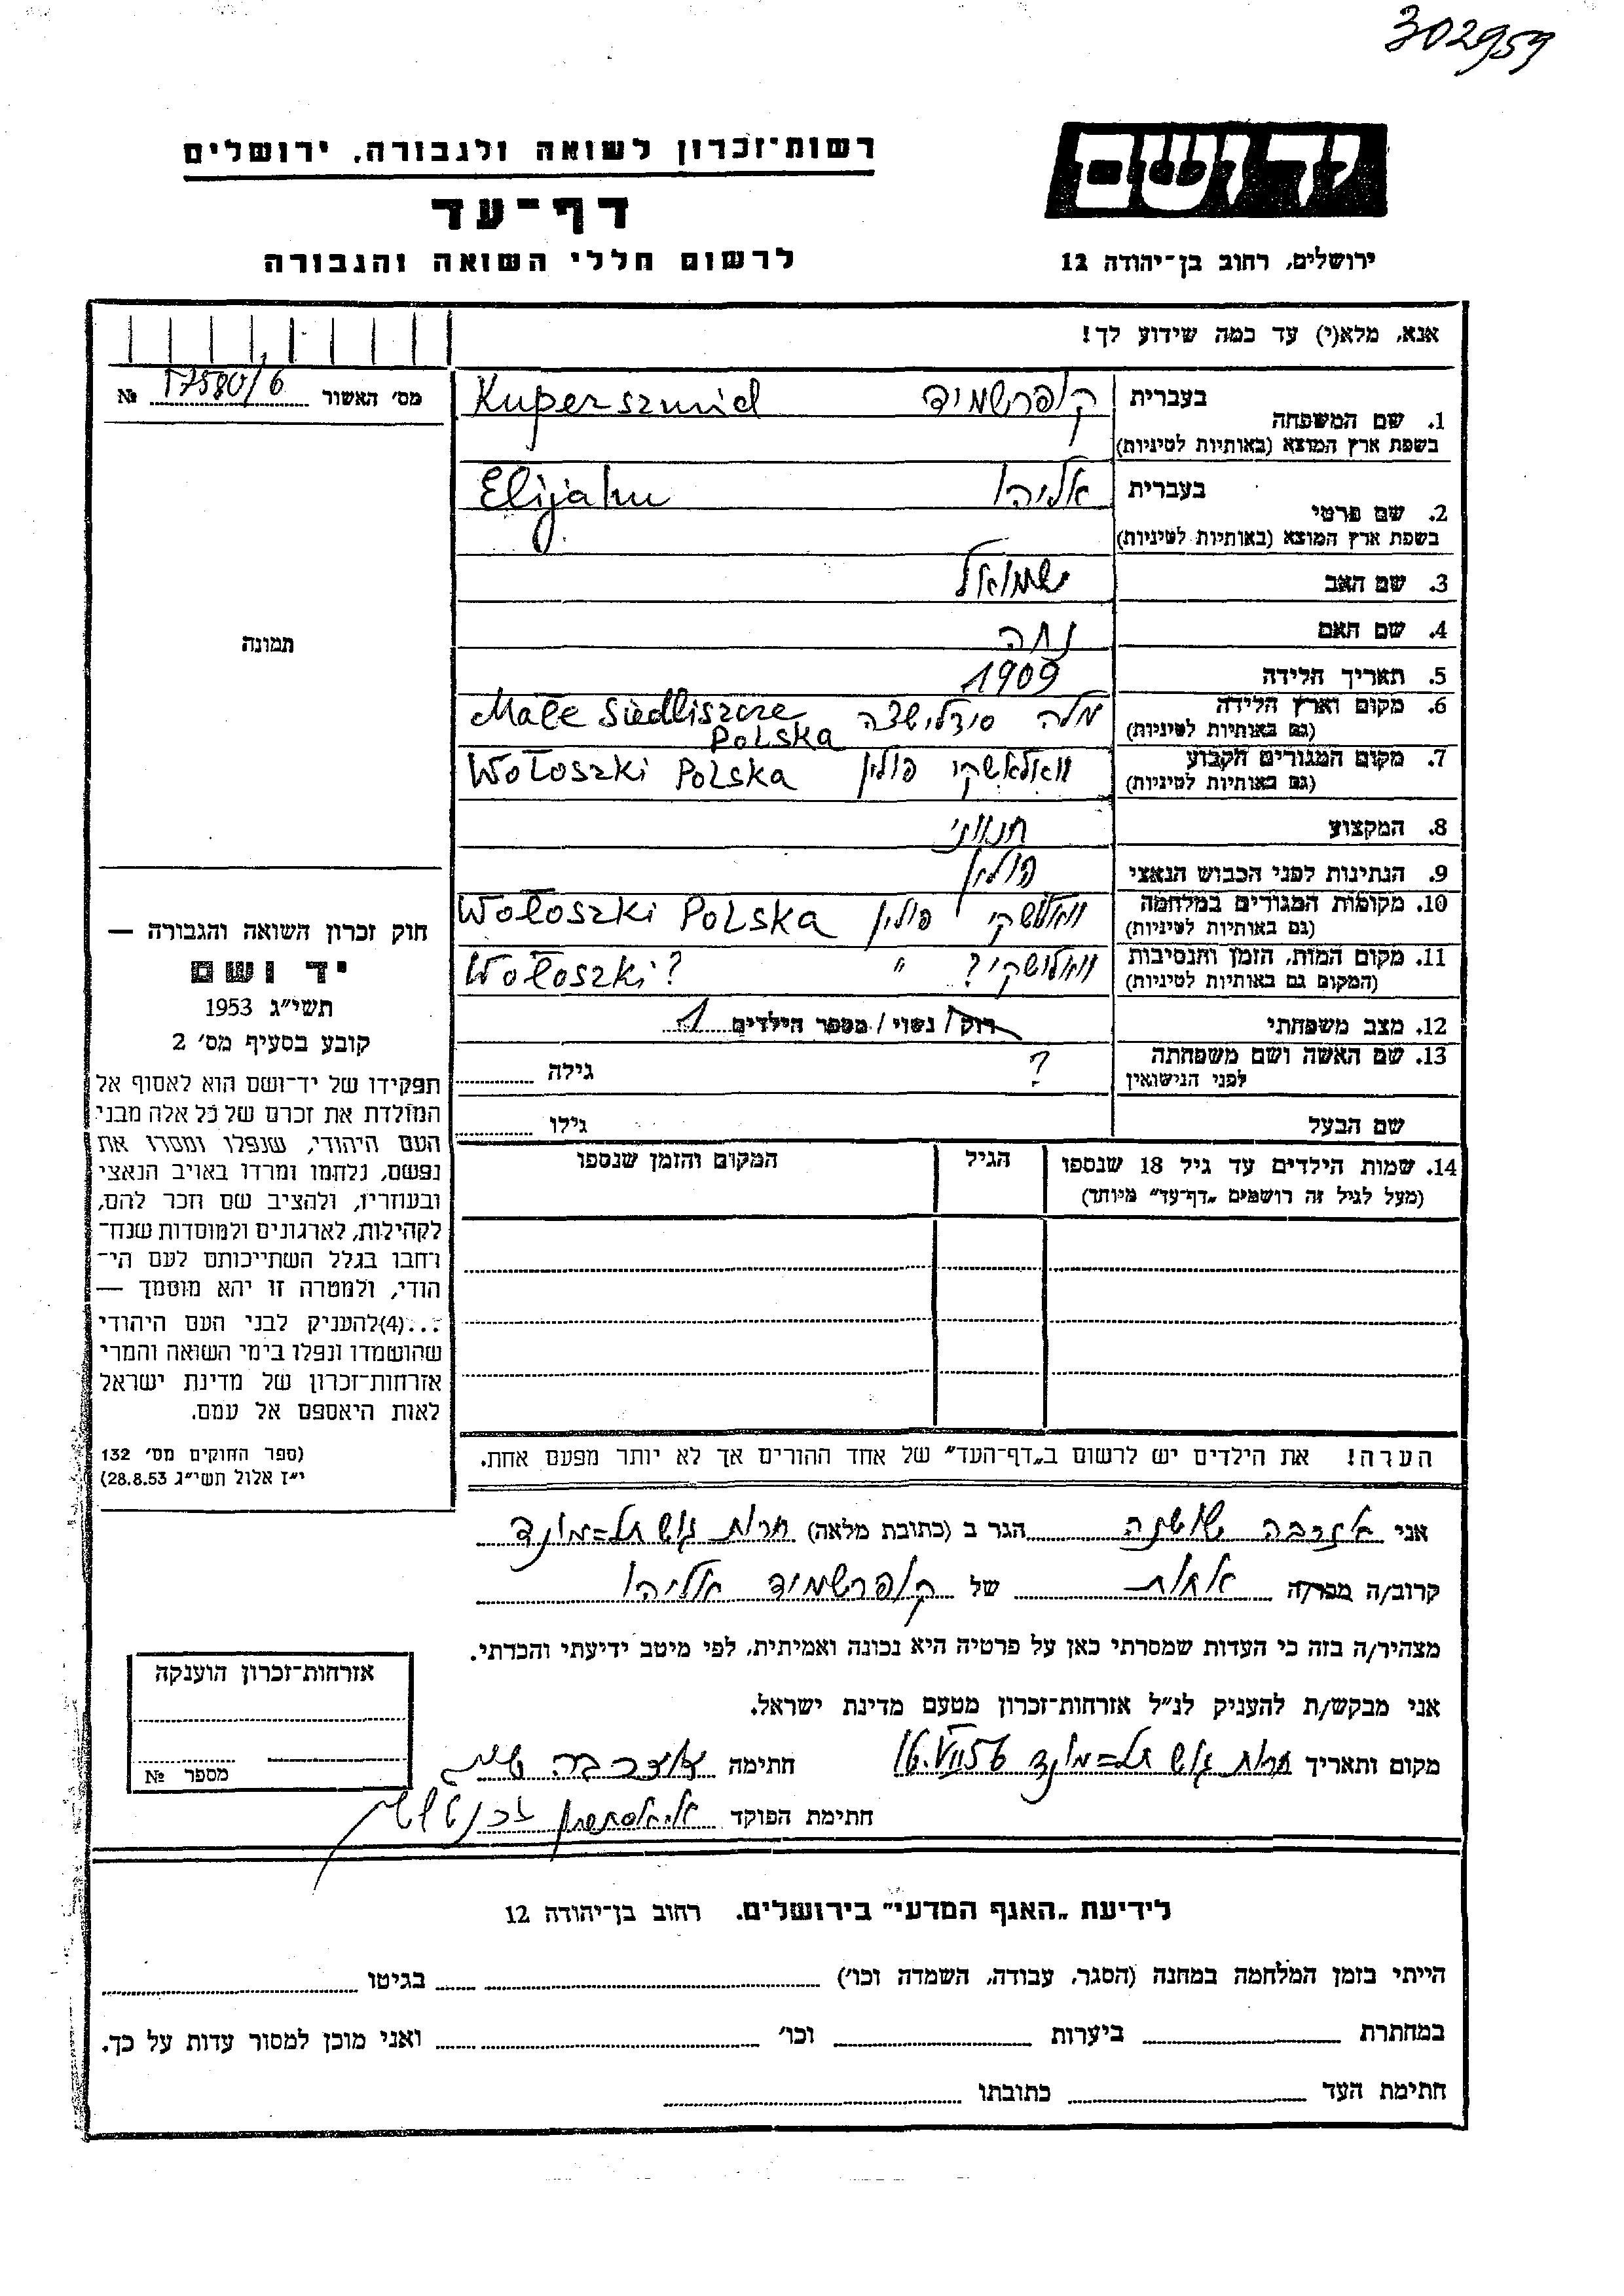 302959
יד ושם
רשות־זכרון לשואה ולגבורה, ירושלים
דף־עד
לרשום חללי השואה והגבורה
ירושלים, רחוב בן־יהודה 12
אנא, מלא(י) עד כמה שידוע לך!
מס' האשור 17580/6 №
תמונה
1. שם המשפחה בעברית קופרשמיד Kuperszmid
בשפת ארץ המוצא (באותיות לטיניות)
2. שם פרטי בעברית אליהו Elijahu
בשפת ארץ המוצא (באותיות לטיניות)
3. שם האב שמואל
4. שם האם
5. תאריך הלידה 1909
6. מקום וארץ הלידה מלה סידלישצה Małe Siedliszcze
(גם באותיות לטיניות) Polska
7. מקום המגורים הקבוע וואלאשקי פולין Wołoszki Polska
(גם באותיות לטיניות)
8. המקצוע חנווני
9. הנתינות לפני הכבוש הנאצי פולין
10. מקומות המגורים במלחמה וואלושקי פולין Wołoszki Polska
(גם באותיות לטיניות)
11. מקום המות, הזמן והנסיבות וואלושקי? " Wołoszki?
(המקום גם באותיות לטיניות)
12. מצב משפחתי רוק/ נשוי/ מספר הילדים 1
13. שם האשה ושם משפחתה ? גילה
לפני הנישואין
שם הבעל גילו
14. שמות הילדים עד גיל 18 שנספו הגיל המקום והזמן שנספו
(מעל לגיל זה רושמים „דף־עד" מיוחד)
הערה! את הילדים יש לרשום ב„דף־העד" של אחד ההורים אך לא יותר מפעם אחת.
חוק זכרון השואה והגבורה —
יד ושם
תשי"ג 1953
קובע בסעיף מס' 2
תפקידו של יד־ושם הוא לאסוף אל
המולדת את זכרם של כל אלה מבני
העם היהודי, שנפלו ומסרו את
נפשם, נלחמו ומרדו באויב הנאצי
ובעוזריו, ולהציב שם וזכר להם,
לקהילות, לארגונים ולמוסדות שנח־
רבו בגלל השתייכותם לעם הי־
הודי, ולמטרה זו יהא מוסמך —
...(4)להעניק לבני העם היהודי
שהושמדו ונפלו בימי השואה והמרי
אזרחות־זכרון של מדינת ישראל
לאות היאספם אל עמם.
(ספר החוקים מס' 132
י"ז אלול תשי"ג 28.8.53)
אני שושנה הגר ב (כתובת מלאה) חרות גוש תל=מונד
קרוב/ה מכר/ה אחות של קופרשמיד אליהו
מצהיר/ה בזה כי העדות שמסרתי כאן על פרטיה היא נכונה ואמיתית, לפי מיטב ידיעתי והכרתי.
אני מבקש/ת להעניק לנ"ל אזרחות־זכרון מטעם מדינת ישראל.
מקום ותאריך חרות גוש תל=מונד חתימה
חתימת הפוקד
אזרחות־זכרון הוענקה
מספר №
לידיעת „האגף המדעי" בירושלים. רחוב בן־יהודה 12
הייתי בזמן המלחמה במחנה (הסגר, עבודה, השמדה וכו') בגיטו
במחתרת ביערות וכו' ואני מוכן למסור עדות על כך.
חתימת העד כתובתו